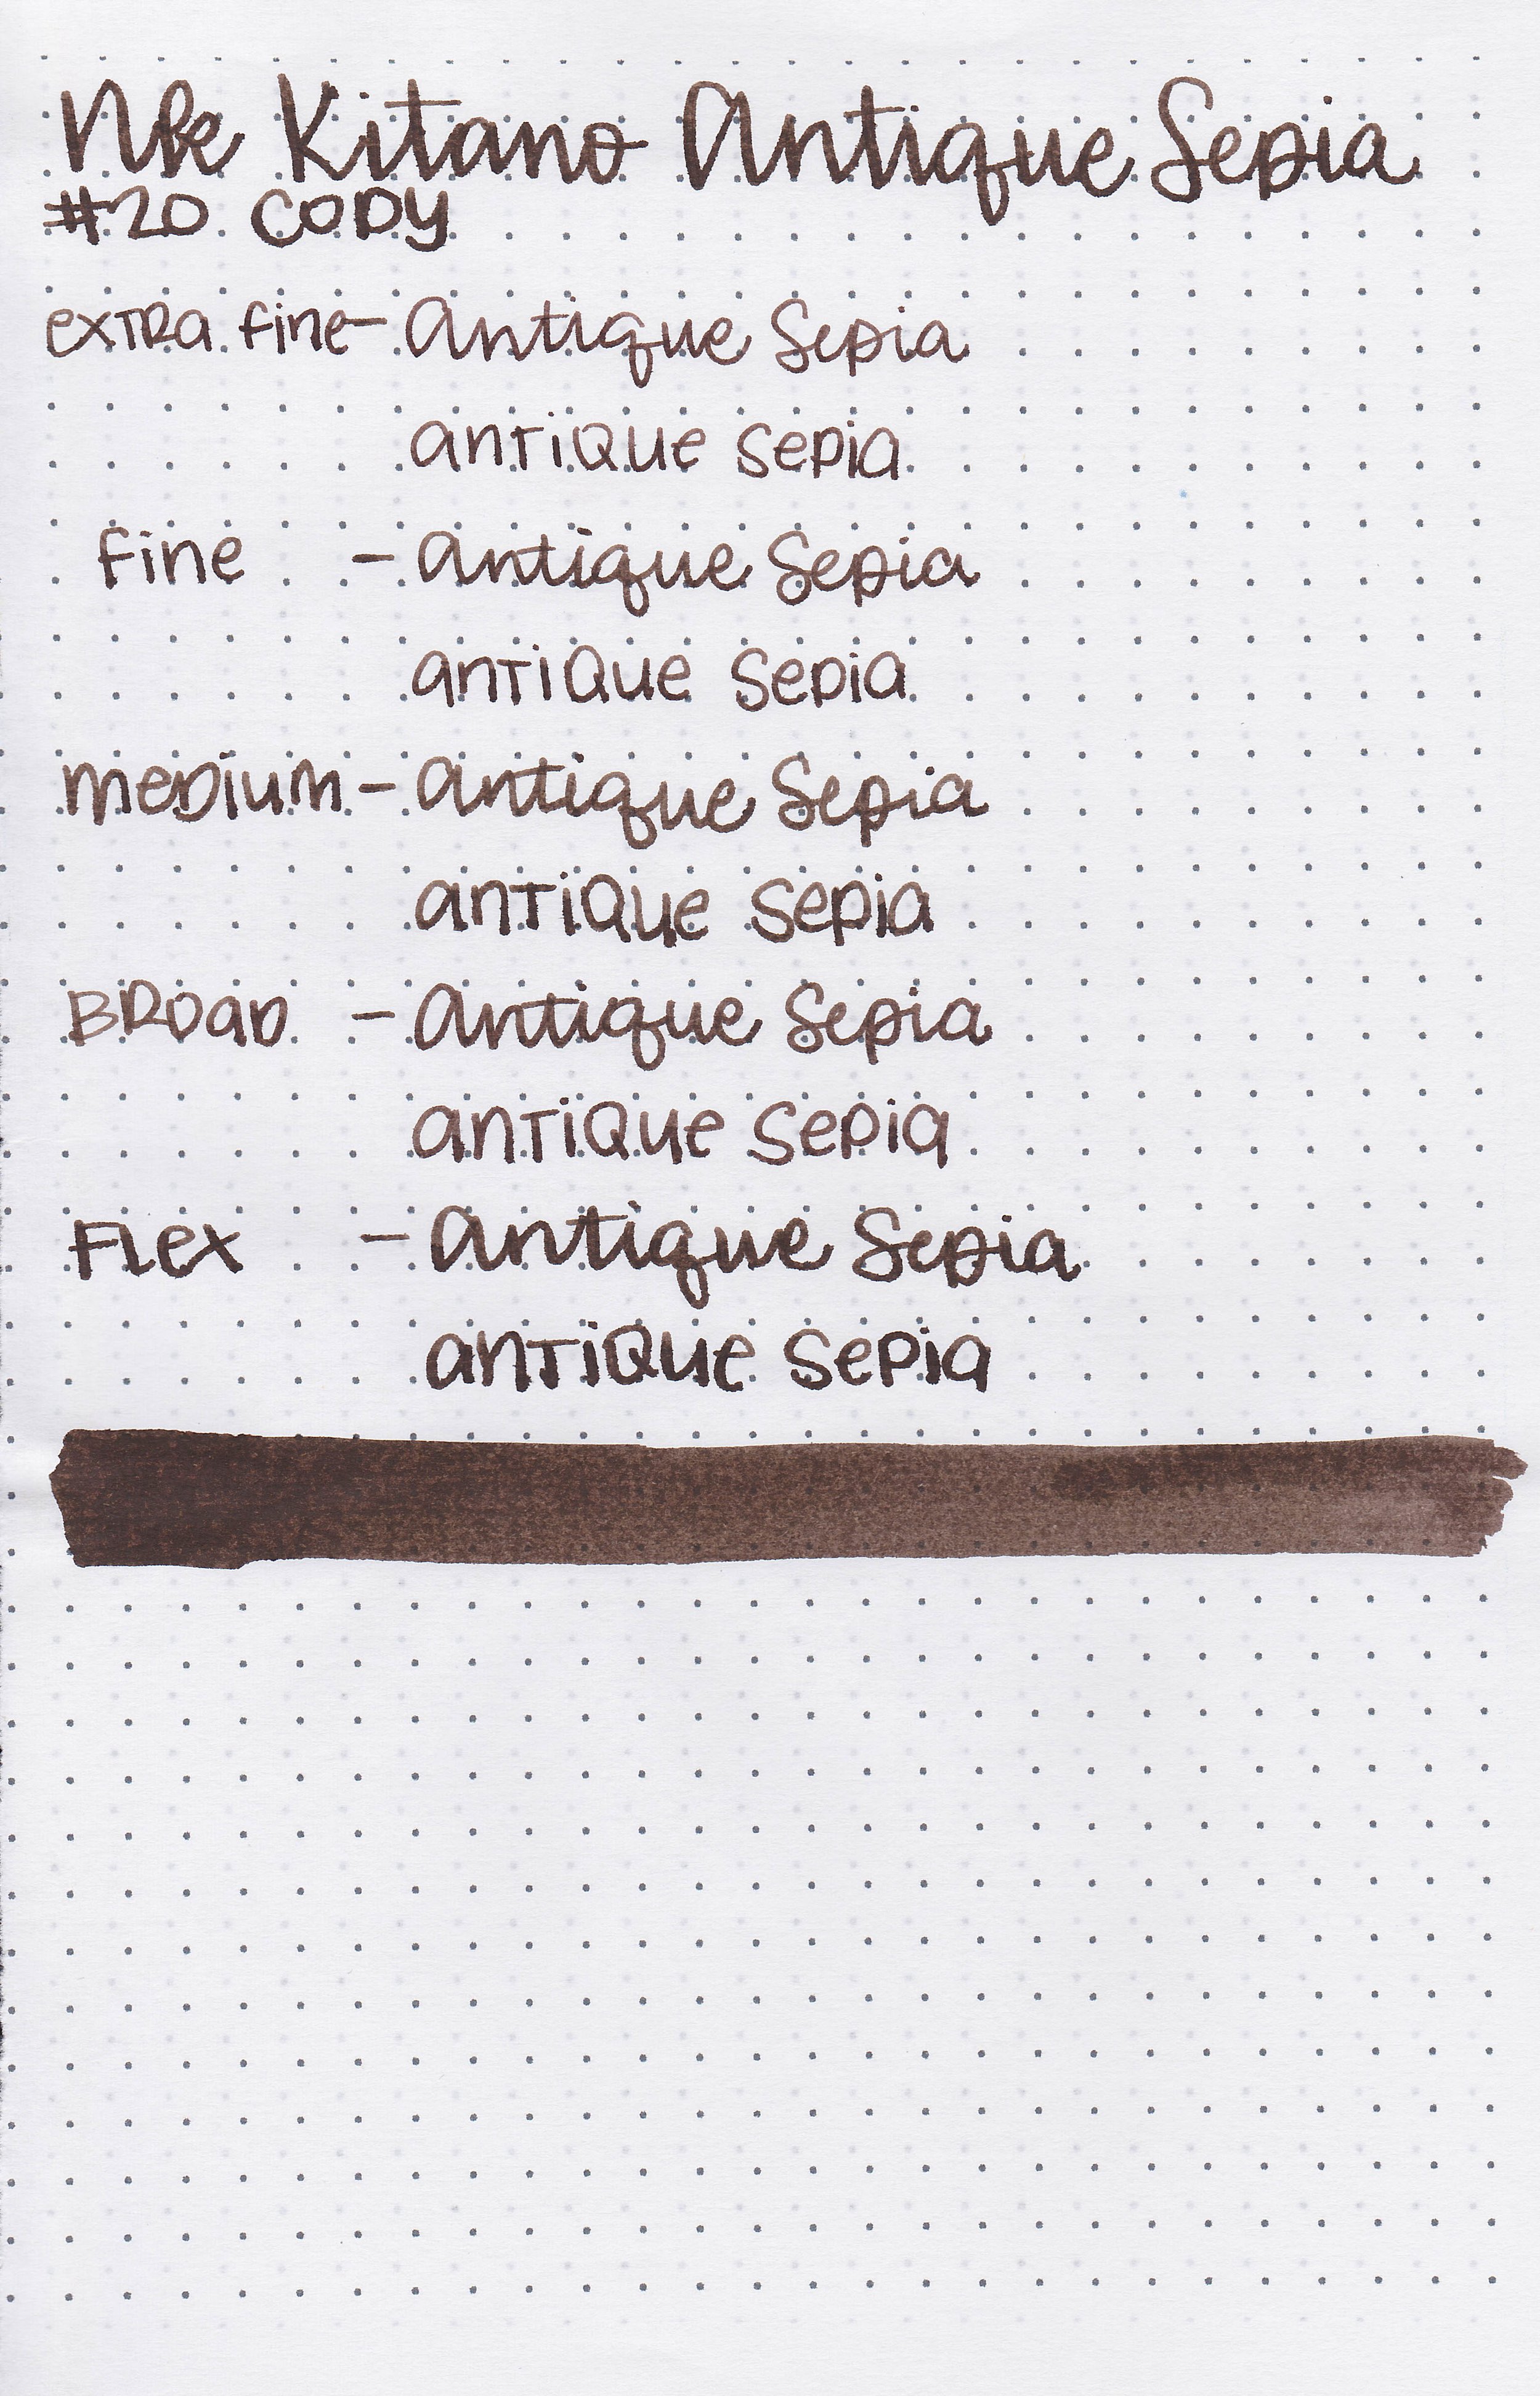 Nk Kitano Antique Sepia
#20 CODY
extra fine - Antique Sepia
antique sepia
fine - Antique Sepia
antique sepia
medium - Antique Sepia
antique sepia
Broad - Antique Sepia
antique sepia
Flex - Antique Sepia
antique sepia